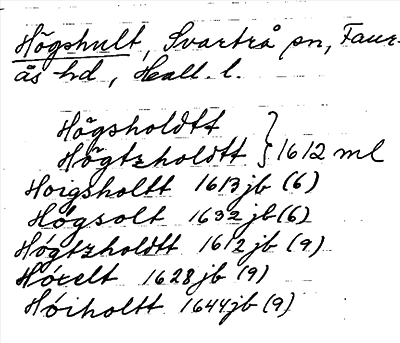 Högshult, Svartrå sn, Faur-
ås hd, Hall. l.
Högsholdtt
Högtzholdtt } 1612 ml
Hoigsholtt 1613 jb (6)
Högsolt 1632 jb (6)
Högtzholdtt 1612 jb (9)
Höxelt 1628 jb (9)
Höiholtt 1644 jb (9)